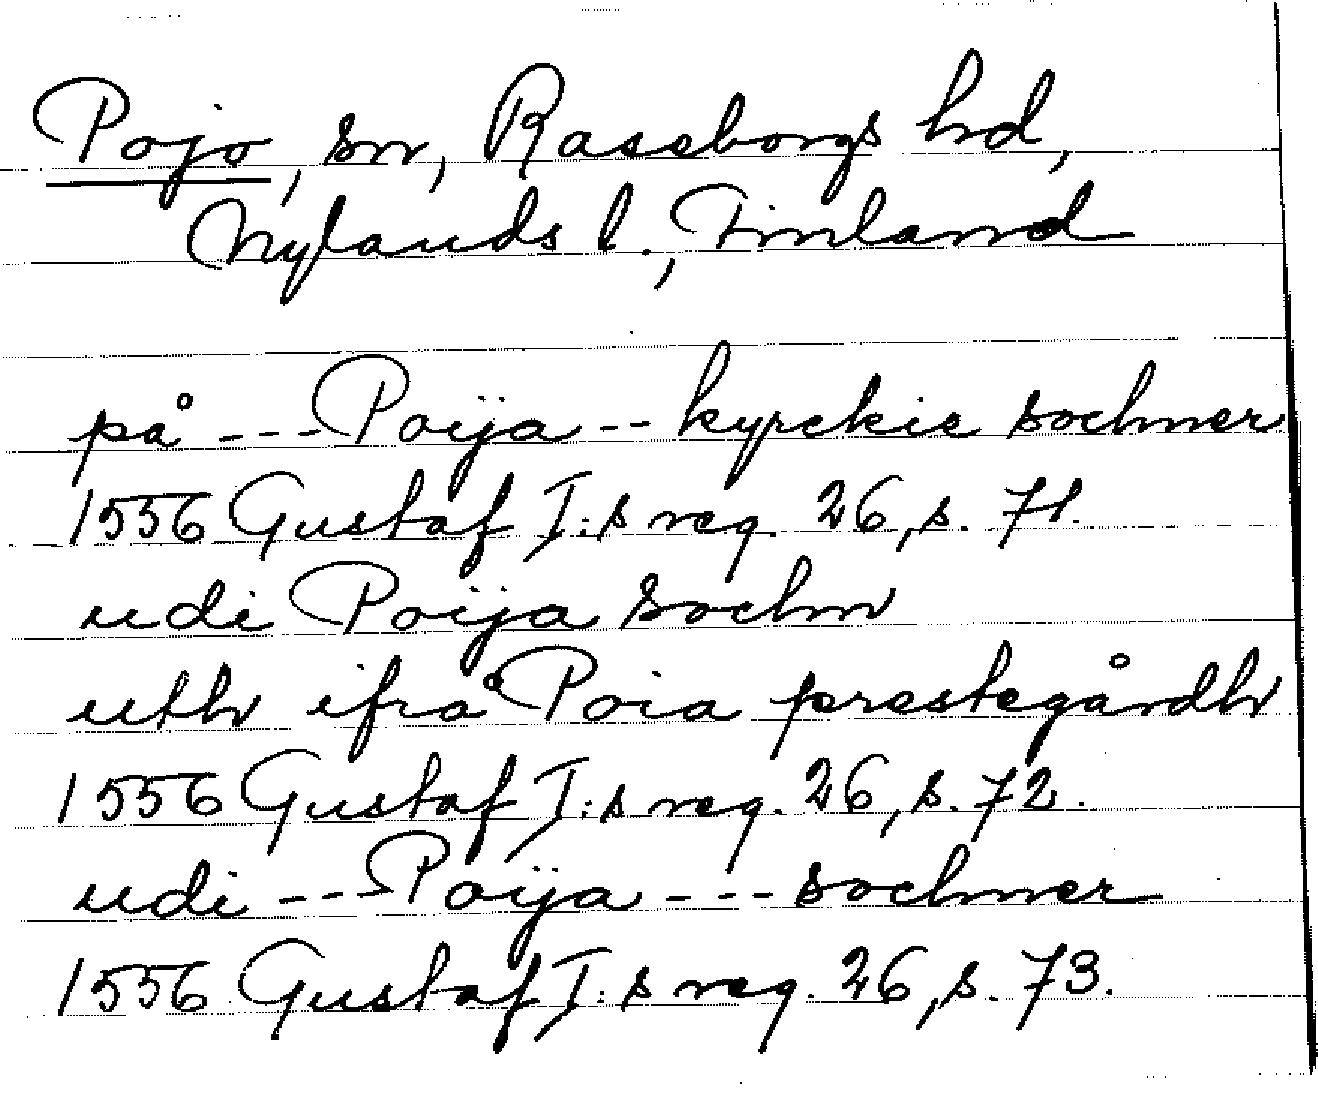 Pojo, sn, Raseborgs hd,
Nylands l., Finland
på --- Poija -- kyrckie sochner
1556 Gustaf I:s reg. 26, s. 71.
udi Poija sochn
uthi ifrå Poia prestegårdh
1556 Gustaf I:s reg. 26, s. 72.
udi --- Poija --- sochner
1556 Gustaf I:s reg. 26, s. 73.